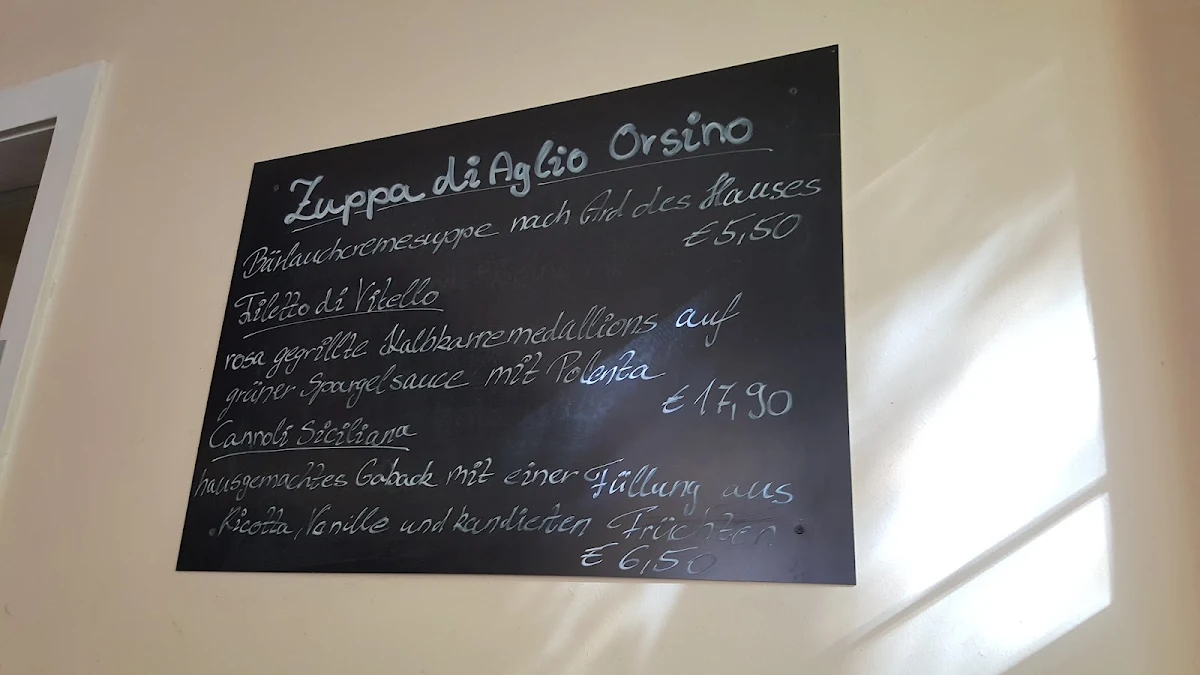 Zuppa di Aglio Orsino
Bärlauchcremesuppe nach Ard des Hauses
€ 5,50
Filetto di Vitello
rosa gegrillte Kalbkarremedallions auf
grüner Spargelsauce mit Polenta
€ 17,90
Cannoli Siciliana
hausgemachtes Gaback mit einer Füllung aus
Ricotta, Vanille und kandierten Früchten
€ 6,50